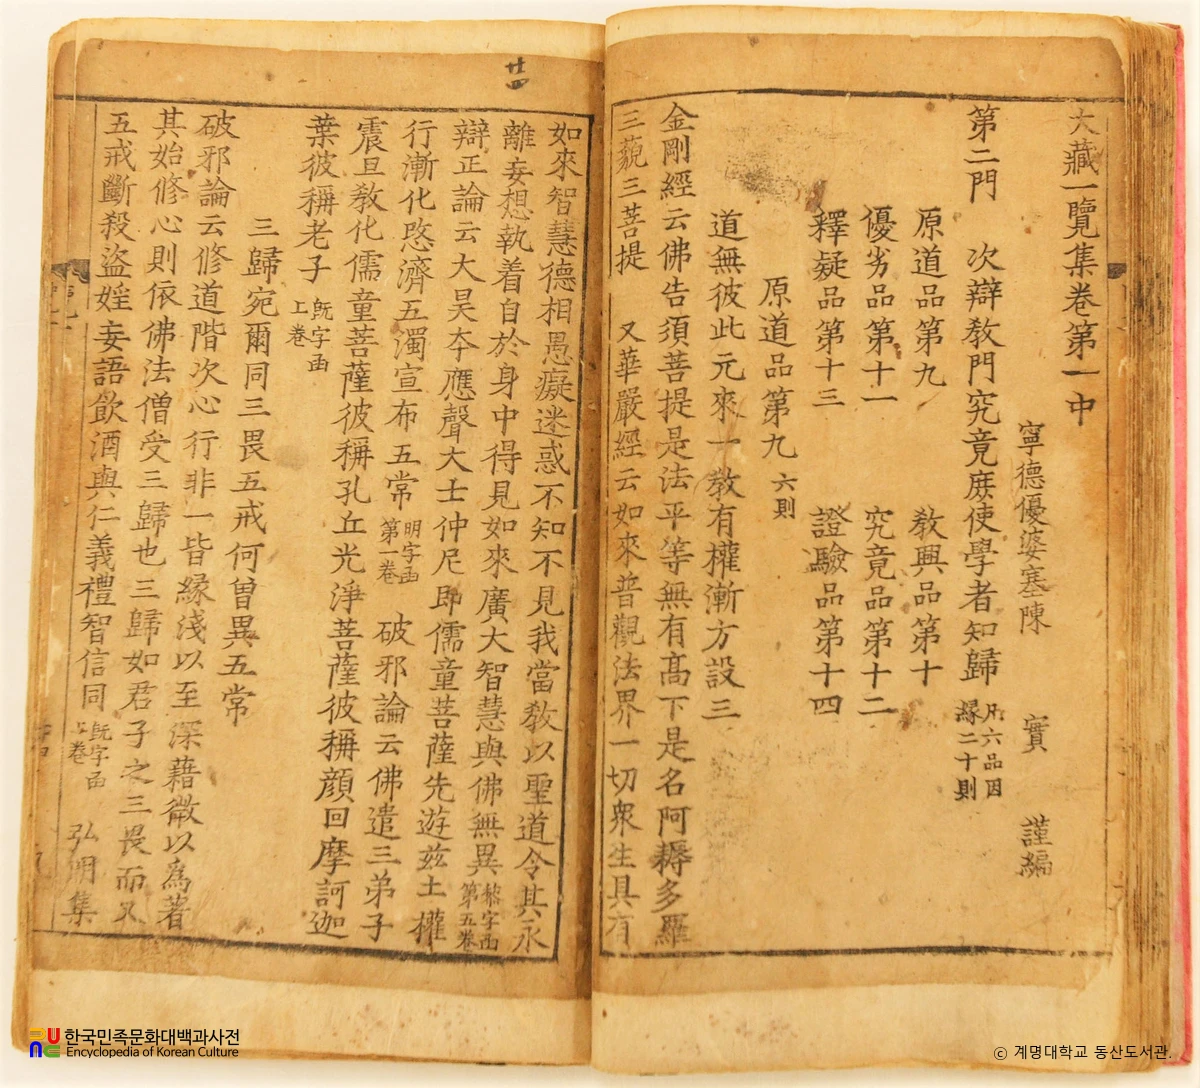 大藏一覽集卷第一中
寧德優婆塞陳 實 謹編
第二門 次辯教門究竟庶使學者知歸 凡六品因緣二十則
原道品第九 教興品第十
優劣品第十一 究竟品第十二
釋疑品第十三 證驗品第十四
原道品第九 六則
道無彼此元來一教有權漸方設三
金剛經云佛告須菩提是法平等無有高下是名阿耨多羅
三藐三菩提 又華嚴經云如來普觀法界一切衆生具有
廿四
如來智慧德相愚癡迷惑不知不見我當教以聖道令其永
離妄想執着自於身中得見如來廣大智慧與佛無異 黎字函第五卷
辯正論云大昊夲應聲大士仲尼即儒童菩薩先遊茲土權
行漸化愍濟五濁宣布五常 明字函第一卷 破邪論云佛遣三弟子
震旦教化儒童菩薩彼稱孔丘光淨菩薩彼稱顔回摩訶迦
葉彼稱老子 旣字函上卷
三歸宛爾同三畏五戒何曽異五常
破邪論云修道階次心行非一皆緣淺以至深藉微以爲著
其始修心則依佛法僧受三歸也三歸如君子之三畏而又
五戒斷殺盜婬妄語飲酒與仁義禮智信同 旣字函上卷 弘明集
한국민족문화대백과사전
Encyclopedia of Korean Culture
ⓒ 계명대학교 동산도서관.